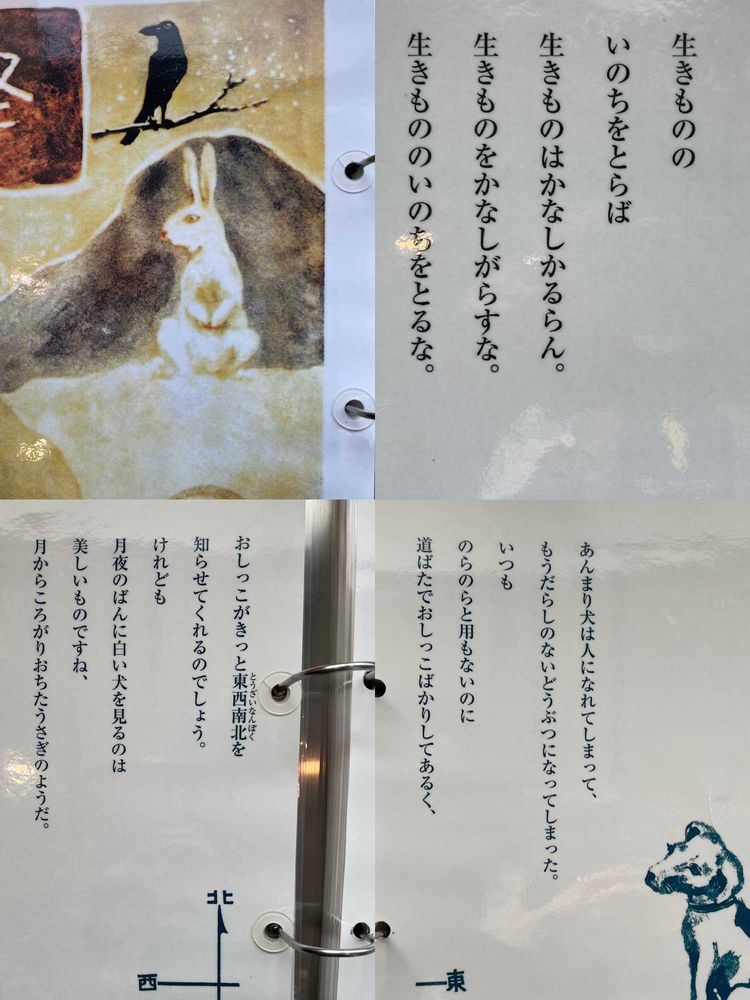 生きものの
いのちをとらば
生きものはかなしかるらん。
生きものをかなしがらすな。
生きもののいのちをとるな。
あんまり犬は人になれてしまって、
もうだらしのないどうぶつになってしまった。
いつも
のらのらと用もないのに
道ばたでおしっこばかりしてあるく、
東
おしっこがきっと東西南北を
とうざいなんぼく
知らせてくれるのでしょう。
けれども
月夜のばんに白い犬を見るのは
美しいものですね、
月からころがりおちたうさぎのようだ。
北
西